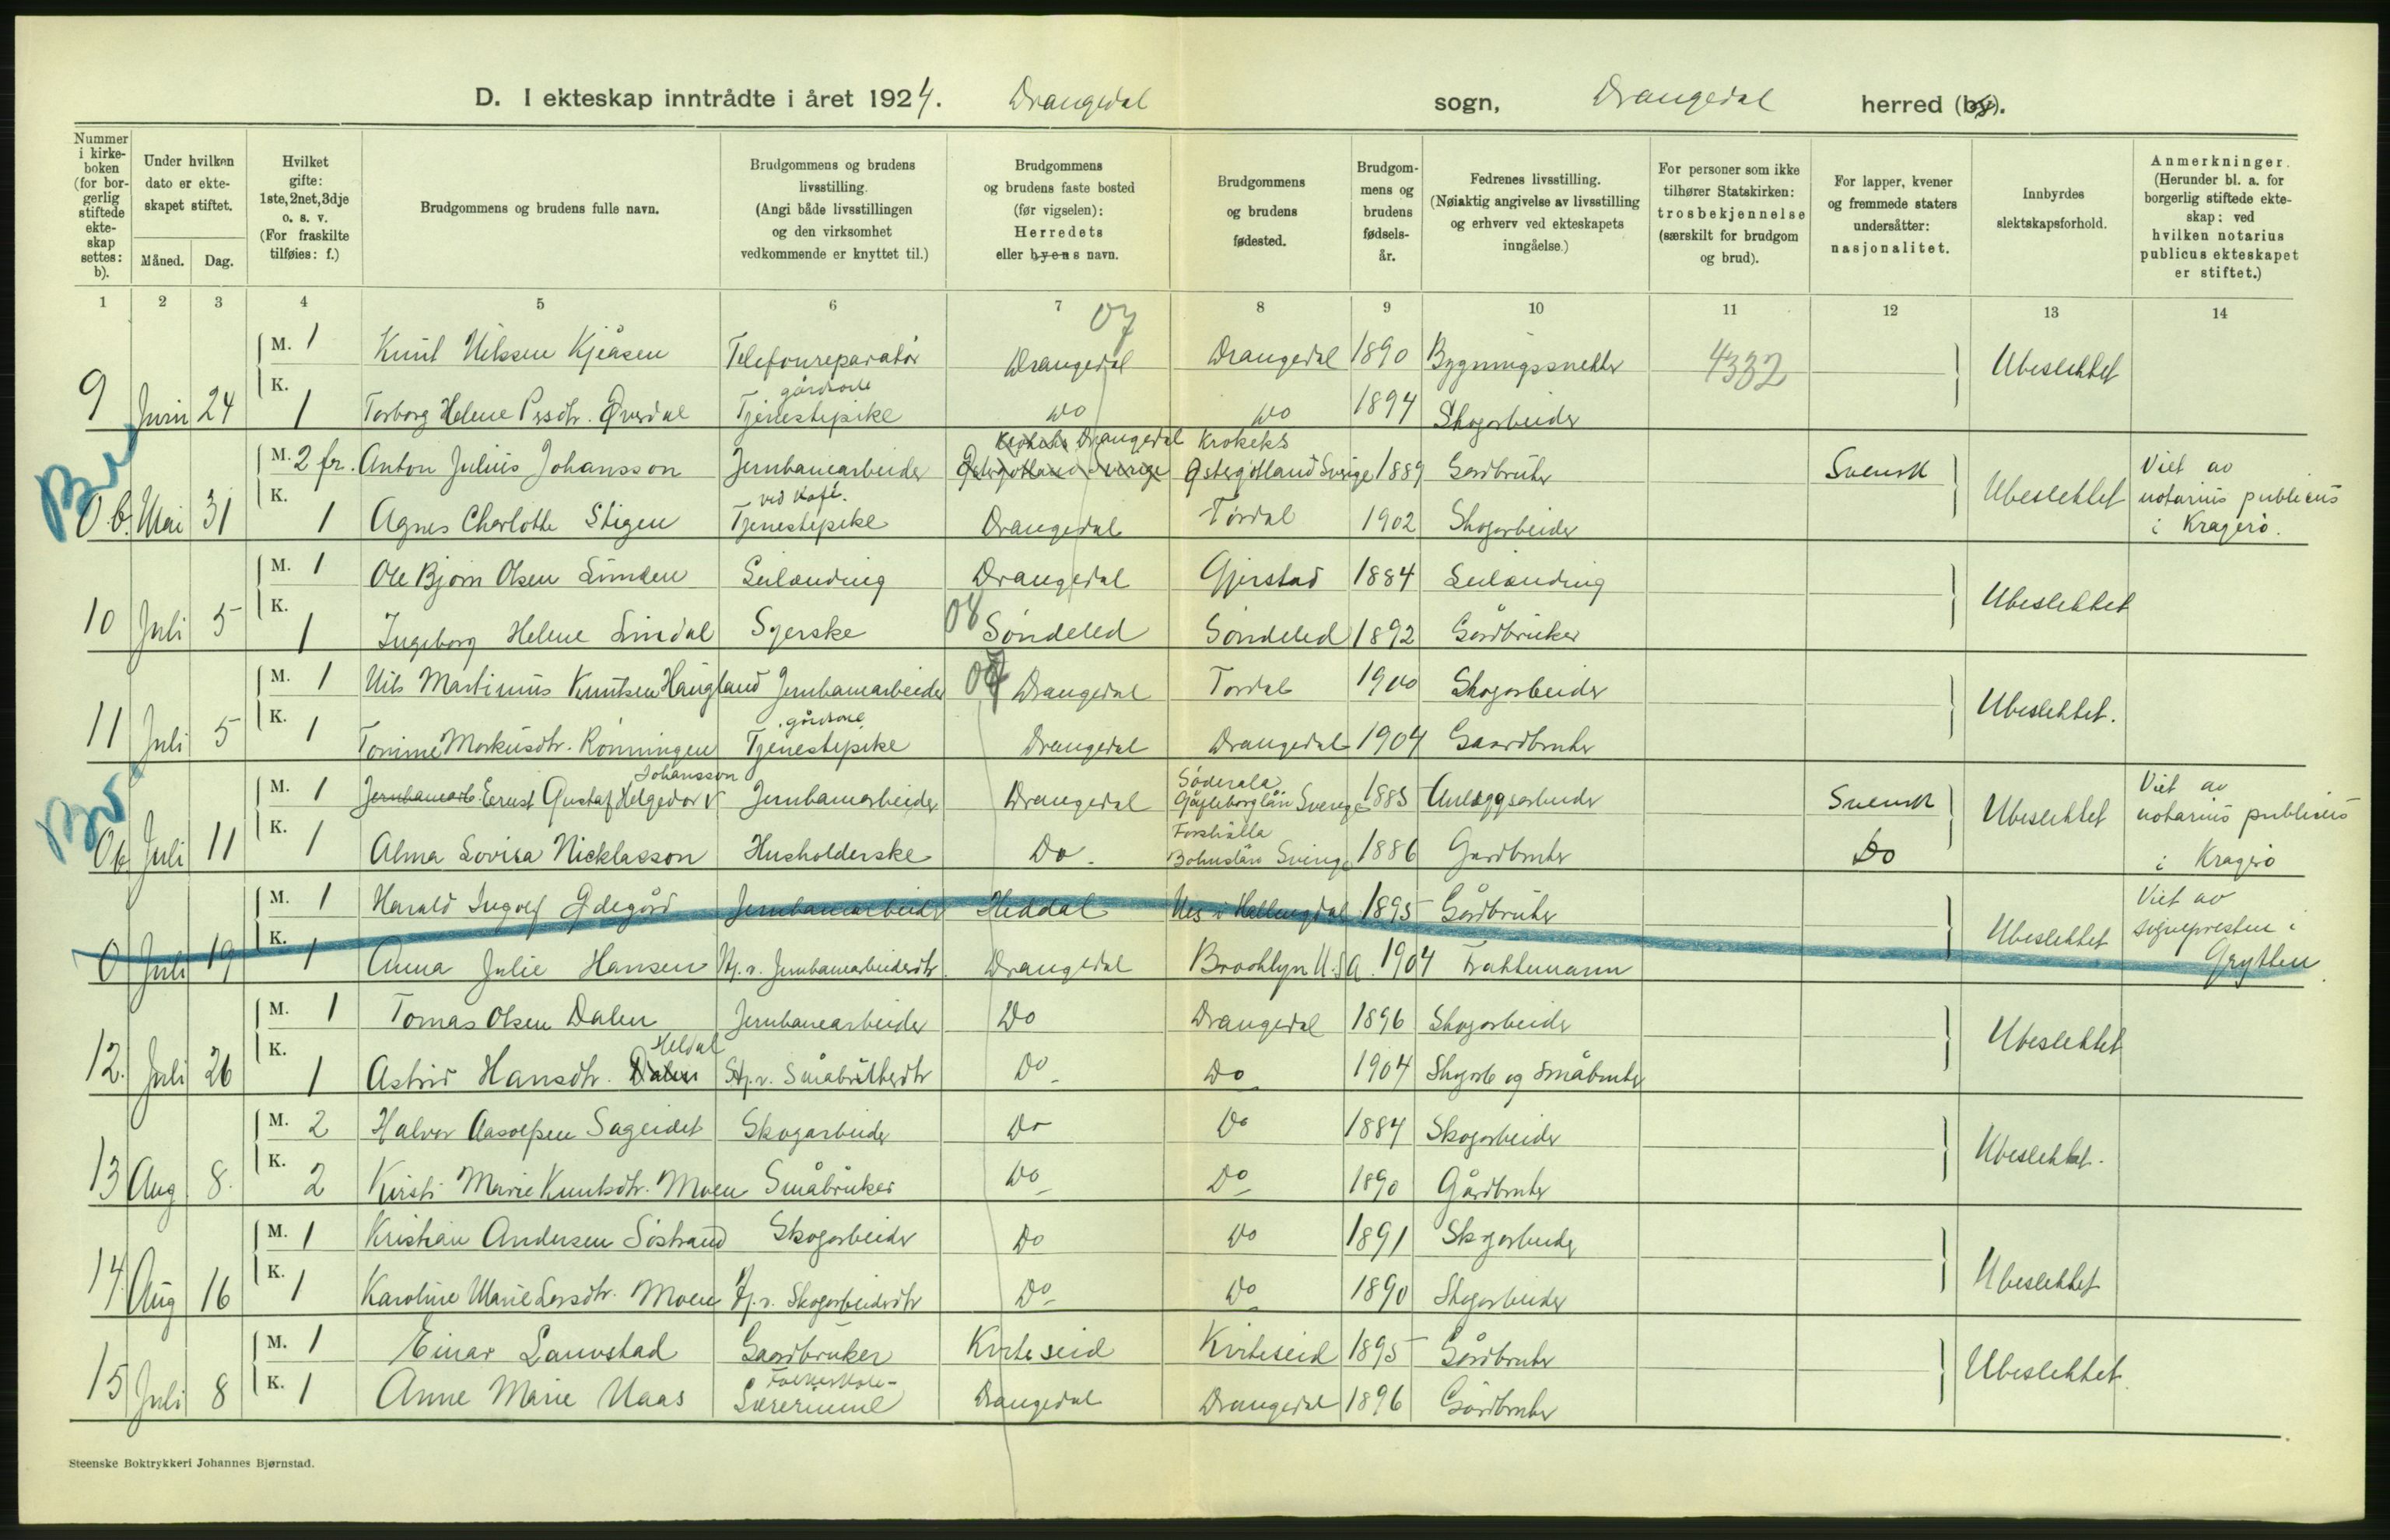 D. I ekteskap inntrådte i året 1924. Drangedal sogn, Drangedal herred (by).
Nummer i kirkeboken (for borgerlig stiftede ekteskap settes: b).
Under hvilken dato er ekteskapet stiftet.
Måned. Dag.
Hvilket gifte: 1ste, 2net, 3dje o. s. v. (For fraskilte tilføies: f.)
Brudgommens og brudens fulle navn.
Brudgommens og brudens livsstilling. (Angi både livsstillingen og den virksomhet vedkommende er knyttet til.)
Brudgommens og brudens faste bosted (før vigselen): Herredets eller byens navn.
Brudgommens og brudens fødested.
Brudgommens og brudens fødselsår.
Fedrenes livsstilling. (Nøiaktig angivelse av livsstilling og erhverv ved ekteskapets inngåelse.)
For personer som ikke tilhører Statskirken: trosbekjennelse (særskilt for brudgom og brud).
For lapper, kvener og fremmede staters undersåtter: nasjonalitet.
Innbyrdes slektskapsforhold.
Anmerkninger. (Herunder bl. a. for borgerlig stiftede ekteskap: ved hvilken notarius publicus ekteskapet er stiftet.)
1 2 3 4 5 6 7 8 9 10 11 12 13 14
07
M. 1 Knut Nilssen Kjeåsen Telefonreparatør Drangedal Drangedal 1890 Bygningssnekker 4332 Ubeslektet
gårdsarb
9 Juni 24 K. 1 Torborg Helene Persdtr. Øverdal Tjenestepike Do Do 1894 Skogarbeider
Krokeks Drangedal Krokeks
M. 2 fr. Anton Julius Johansson Jernbanearbeider Østergøtland Sverige Østergøtland Sverige 1889 Gardbruker Svensk Ubeslektet Viet av notarius publicus i Kragerø.
ved Kafé.
0.b. Mai 31 K. 1 Agnes Charlotte Stigen Tjenestepike Drangedal Tørdal 1902 Skogarbeider
M. 1 Ole Bjørn Olsen Limden Leilænding Drangedal Gjerstad 1884 Leilænding Ubeslektet
10 Juli 5 K. 1 Ingeborg Helene Lindal Syerske 08 Søndeled Søndeled 1892 Gårdbruker
M. 1 Nils Martinius Knutsen Haugland Jernbanearbeider 07 Drangedal Tørdal 1900 Skogarbeider Ubeslektet.
11 Juli 5 K. 1 Tomine Markusdtr. Rønningen Tjenestepike Drangedal Drangedal 1904 Gaardbruker
Johansson Söderala
M. 1 Jernbanearb. Ernst Gustaf Helgedor Jernbanearbeider Drangedal Gäfleborglän Sverige 1885 Anlæggsarbeider Svensk Ubeslektet Viet av notarius publicus i Kragerø
Forshälla
0b Juli 11 K. 1 Alma Lovisa Nicklasson Husholderske Do. Bohuslän Sverige 1886 Gardbruker Do
M. 1 Harald Ingolf Ødegård Jernbanearbeider Heddal Nes i Hallingdal 1895 Gårdbruker Ubeslektet Viet av sognepresten i Grytten.
0 Juli 19 K. 1 Anna Julie Hansen Hj. v. Jernbanearbeiderdtr. Drangedal Brooklyn U.S.A. 1904
M. 1 Tomas Olsen Dalen Jernbanearbeider Do Drangedal 1896 Skogarbeider Ubeslektet
Heldal
12. Juli 26 K. 1 Astrid Hansdtr. Dalen Hj. v. Småbrukerdtr Do Do 1904 Skogarb og Småbruker
M. 2 Halvor Aasolfsen Sageidet Skogarbeider Do Do 1884 Skogarbeider Ubeslektet.
13 Aug 8. K. 2 Kirsti Marie Knutsdtr. Moen Småbruker Do Do 1890 Gårdbruker
M. 1 Kristian Andersen Søstrand Skogarbeider Do Do 1891 Skogarbeider Ubeslektet
14 Aug 16 K. 1 Karoline Marie Larsdtr. Moen Hj. v. Skogarbeiderdtr Do Do 1890 Skogarbeider
M. 1 Einar Lauvstad Gaardbruker Kviteseid Kviteseid 1895 Gårdbruker Ubeslektet.
Folkeskole-
15 Juli 8 K. 1 Anne Marie Naas Lærerinne Drangedal Drangedal 1896 Gårdbruker
Steenske Boktrykkeri Johannes Bjørnstad.